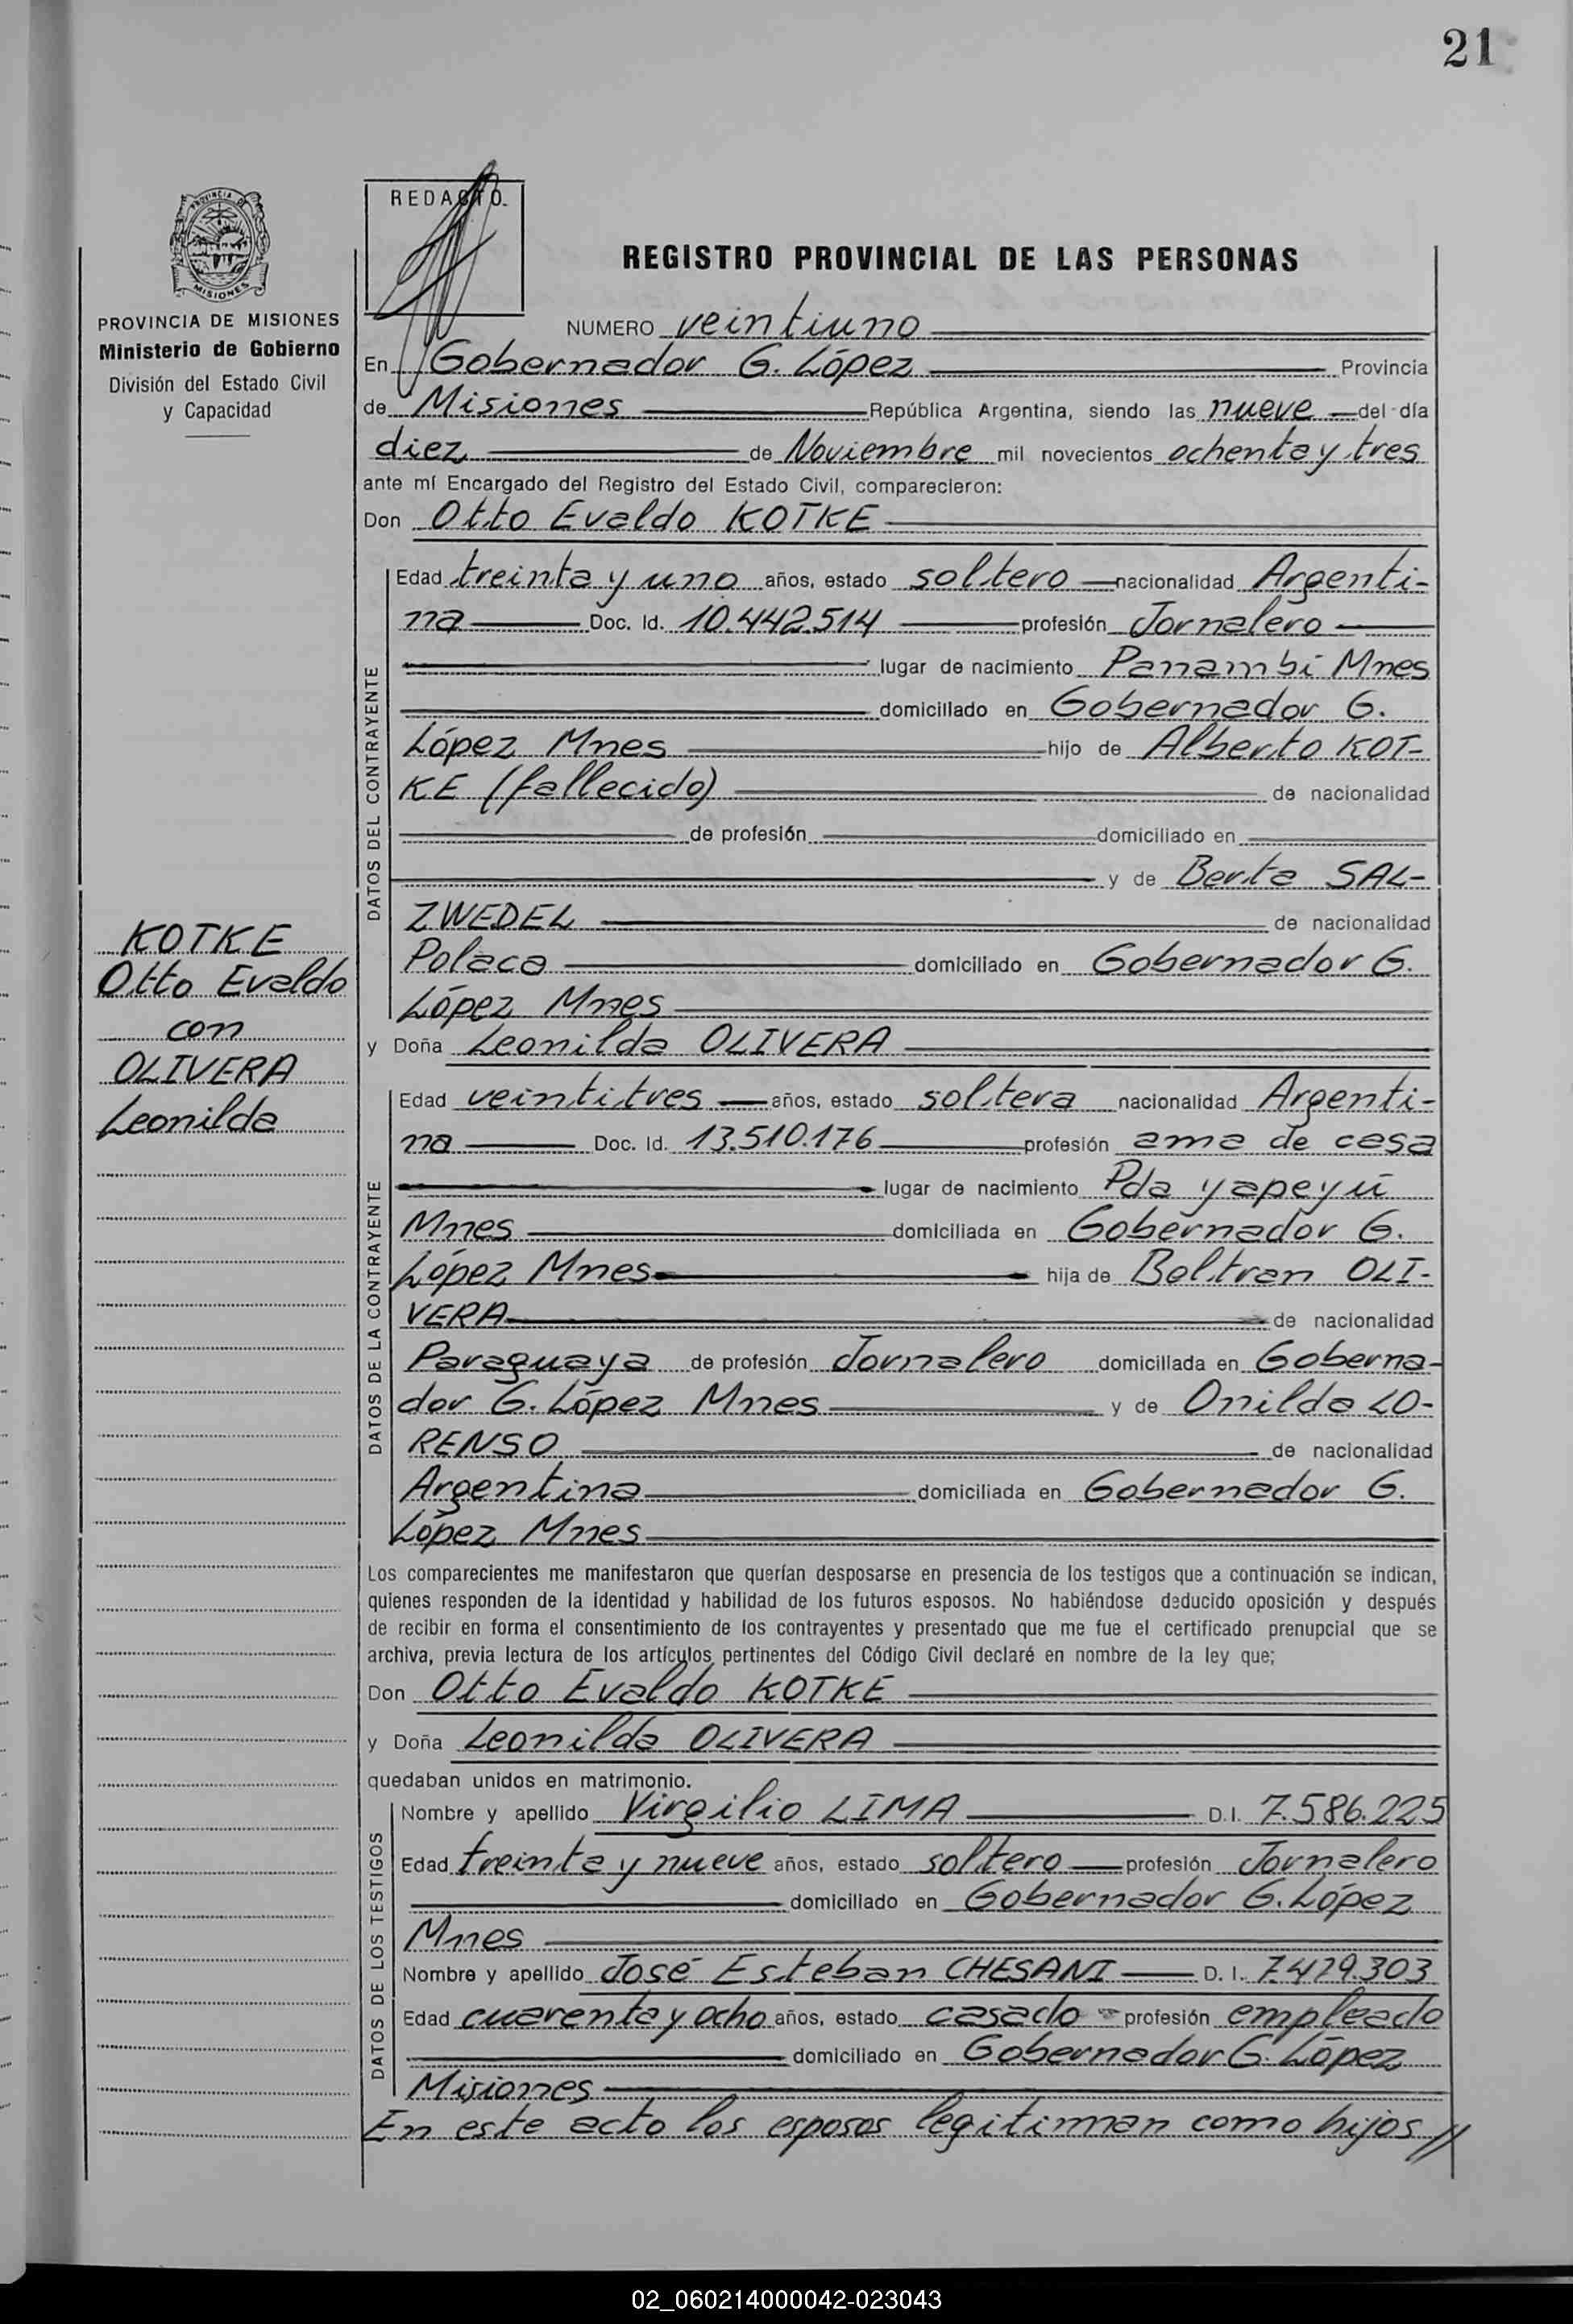 21
REDACTO.
PROVINCIA DE MISIONES
PROVINCIA DE MISIONES
Ministerio de Gobierno
División del Estado Civil
y Capacidad
REGISTRO PROVINCIAL DE LAS PERSONAS
NUMERO veintiuno
En Gobernador G. López Provincia
de Misiones República Argentina, siendo las nueve del día
diez de Noviembre mil novecientos ochenta y tres
ante mí Encargado del Registro del Estado Civil, comparecieron:
Don Otto Evaldo KOTKE
DATOS DEL CONTRAYENTE
Edad treinta y uno años, estado soltero nacionalidad Argenti-
na Doc. Id. 10.442.514 profesión Jornalero
lugar de nacimiento Panambi Mnes
domiciliado en Gobernador G.
López Mnes hijo de Alberto KOT-
KE (fallecido) de nacionalidad
de profesión domiciliado en
y de Berta SAL-
ZWEDEL de nacionalidad
Polaca domiciliado en Gobernador G.
López Mnes
KOTKE
Otto Evaldo
con
OLIVERA
Leonilda
y Doña Leonilda OLIVERA
DATOS DE LA CONTRAYENTE
Edad veintitres años, estado soltera nacionalidad Argenti-
na Doc. Id. 13.510.176 profesión ama de casa
lugar de nacimiento Pda yapeyú
Mnes domiciliada en Gobernador G.
López Mnes hija de Beltran OLI-
VERA de nacionalidad
Paraguaya de profesión Jornalero domiciliada en Goberna-
dor G. López Mnes y de Onilda LO-
RENSO de nacionalidad
Argentina domiciliada en Gobernador G.
López Mnes
Los comparecientes me manifestaron que querían desposarse en presencia de los testigos que a continuación se indican,
quienes responden de la identidad y habilidad de los futuros esposos. No habiéndose deducido oposición y después
de recibir en forma el consentimiento de los contrayentes y presentado que me fue el certificado prenupcial que se
archiva, previa lectura de los artículos pertinentes del Código Civil declaré en nombre de la ley que;
Don Otto Evaldo KOTKE
y Doña Leonilda OLIVERA
quedaban unidos en matrimonio.
DATOS DE LOS TESTIGOS
Nombre y apellido Virgilio LIMA D.I. 7.586.225
Edad treinta y nueve años, estado soltero profesión Jornalero
domiciliado en Gobernador G. López
Mnes
Nombre y apellido José Esteban CHESANI D.I. 7.479.303
Edad cuarenta y ocho años, estado casado profesión empleado
domiciliado en Gobernador G. López
Misiones
En este acto los esposos legitiman como hijos //
02_060214000042-023043